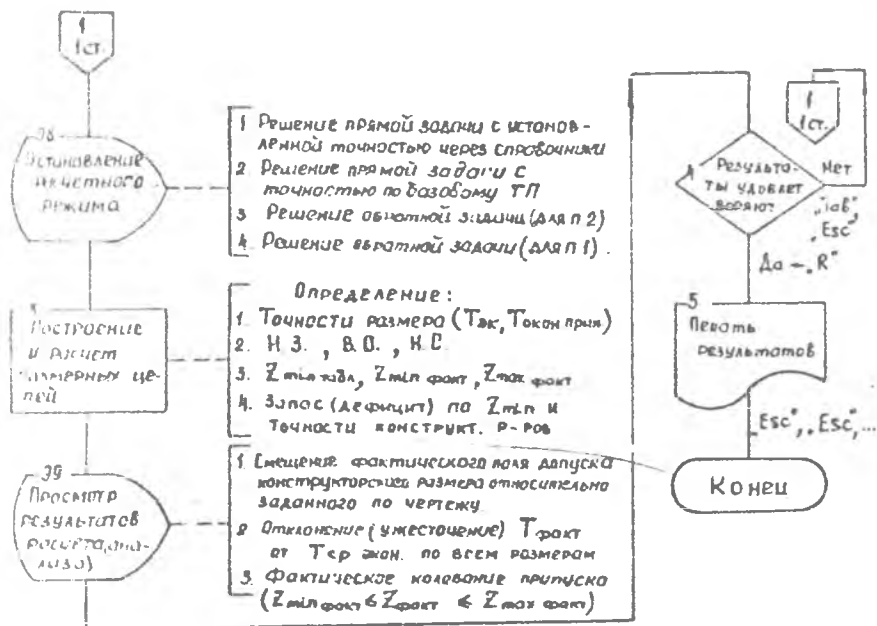 1
1ст.
Установление
расчетного
режима
1 Решение прямой задачи с установ-
ленной точностью через справочники
2 Решение прямой задачи с
точностью по базовому ТП
3 Решение обратной задачи (для п 2)
4. Решение обратной задачи (для п 1).
Построение
и расчет
размерных це-
пей
Определение:
1. Точности размера (Тэк, Токон прин)
2. Н.З., В.О., Н.С.
3. Zmin табл, Zmin факт, Zmax факт
4. Запас (дефицит) по Zmin и
точности конструкт. р-ров
39
Просмотр
результатов
расчета (ана-
лиза)
1. Смещение фактического поля допуска
конструкторского размера относительно
заданного по чертежу
2 Отклонение (ужесточение) Тфакт
от Тср экон. по всем размерам
3. Фактическое колебание припуска
(Zmin факт ≤ Zфакт ≤ Zmax факт)
1
1ст.
4
Результа-
ты удовлет
воряют
Нет
„Tab"
„Esc"
Да – „R"
5
Печать
результатов
„Esc", „Esc",...
Конец